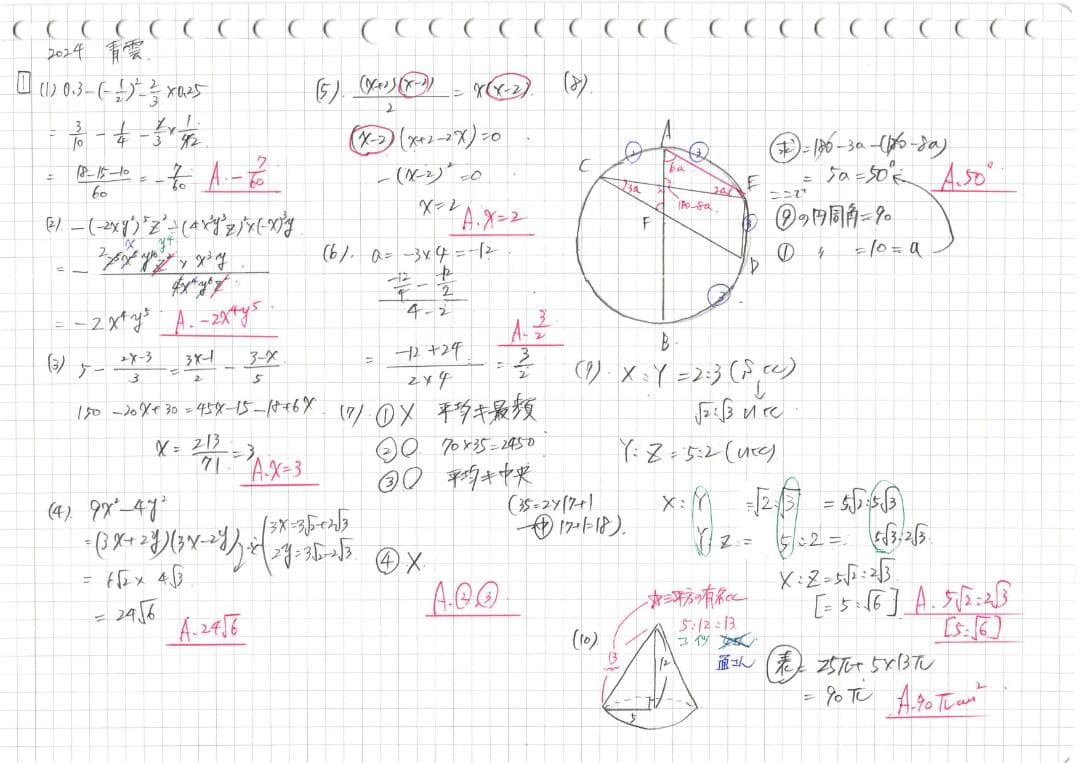 2024 青雲
1
(1) 0.3-(-1/2)²-2/3×0.25
= 3/10 - 1/4 - 2/3×1/42
= 18-15-10/60 = -7/60 A. -7/60
(2) -(-2xy²)⁵z²÷(4x²y³z)²×(-x)³y
= -2x⁴y⁵ A. -2x⁴y⁵
(3) 5 - 2x-3/3 = 3x-1/2 - 3-x/5
150-20x+30=45x-15-18+6x
x = 213/71 = 3
A. x=3
(4) 9x²-4y²
=(3x+2y)(3x-2y)
3x=3√2+2√3
2y=3√2-2√3
= 6√2 × 4√3
= 24√6
A. 24√6
(5). (x+2)(x-2)/2 = x(x-2).
(x-2)(x+2-2x)=0
-(x-2)²=0
x=2
A. x=2
(6). a=-3×4=-12
-12/4 - -12/2
4-2
= -12+24/2×4 = 3/2
A. 3/2
(7) ①× 平均≠最頻
②○ 70×35=2450
③○ 平均≠中央
(35=2×17+1
→中 17+1=18).
④×.
A. ②③
(8)
A
C
E
F
D
B
6a
3a
2a
180-8a
②
③
③
求=180-3a-(180-8a)
= 5a=50°
A. 50°
⑨の円周角=90
① 〃 =10=a
(9). X:Y=2:3 (S比)
√2:√3
Y:Z=5:2
X:Y =√2:√3 =5√2:5√3
Y:Z= 5:2= 5√3:2√3
X:Z=5√2:2√3.
[=5:√6] A. 5√2:2√3
[5:√6]
(10)
☆三平方の有名比
5:12:13
13
12
5
表= 25π+5×13π
= 90π A. 90πcm²